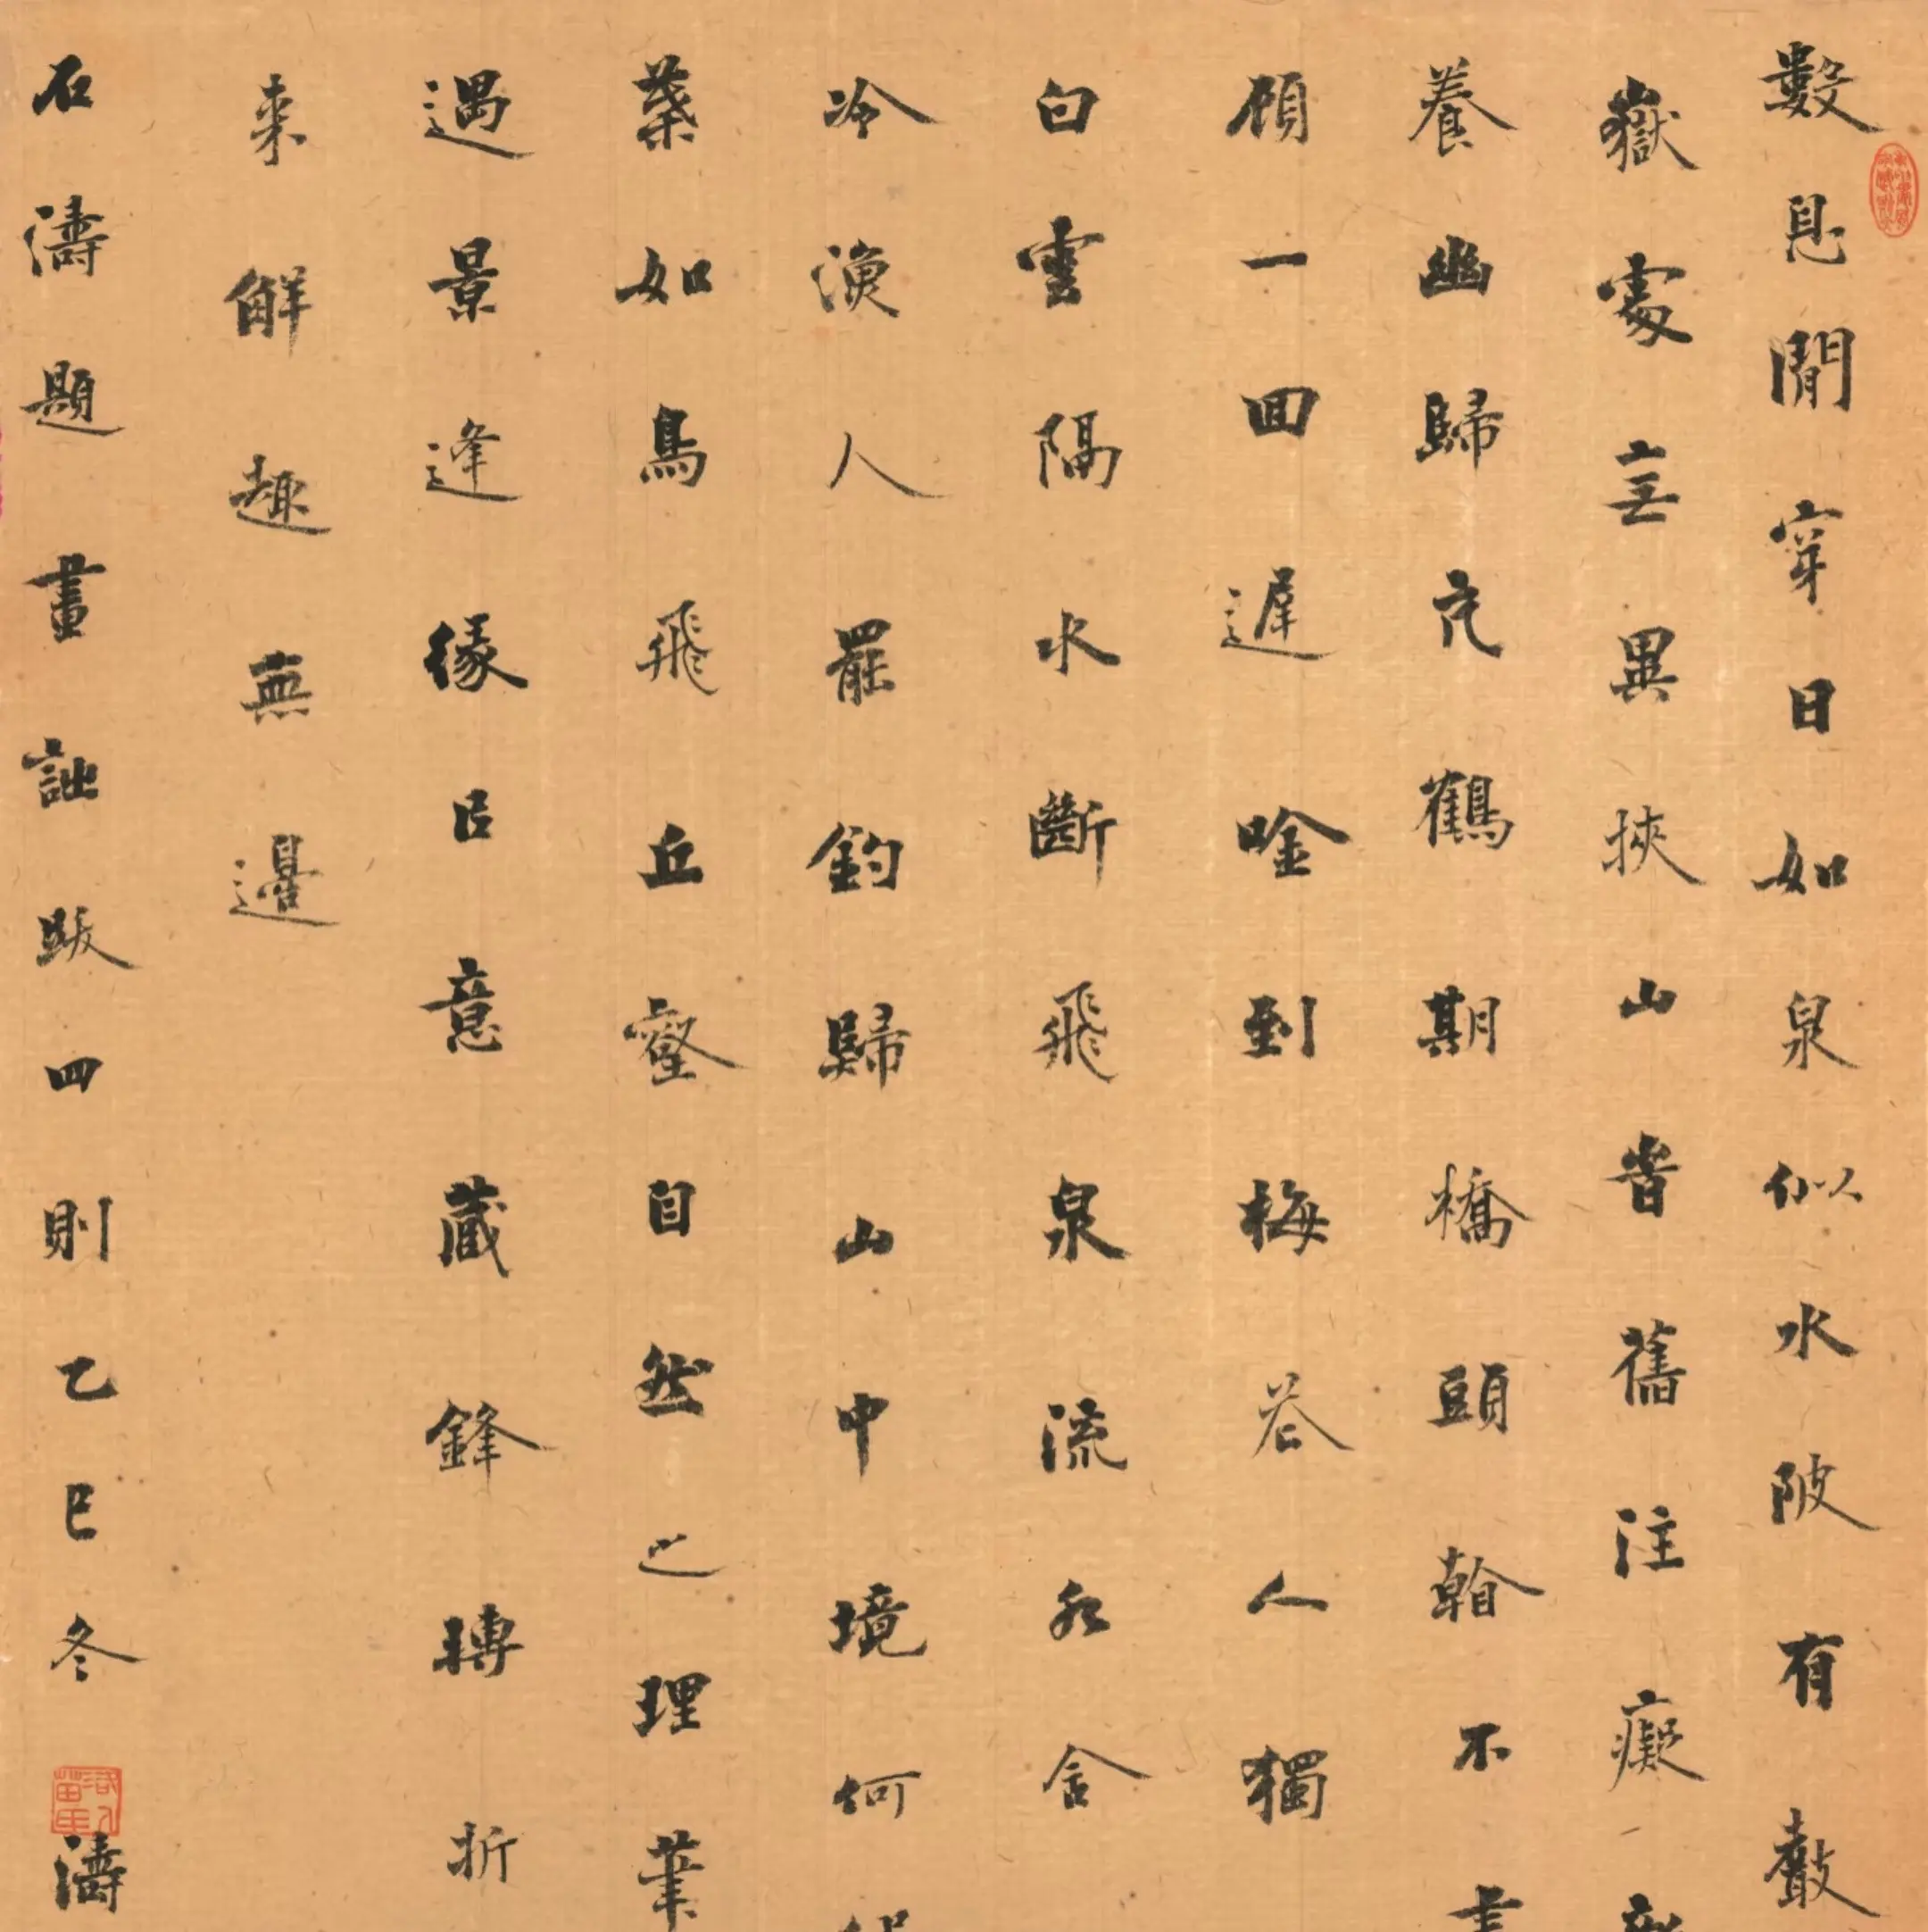 數息閒穿日如泉似水陂有聲
嶽處異挾山舊注癡
養幽歸鶴期橋頭翰不
頋一回遲唫到梅人獨
白雲隔水斷飛泉流舍
冷漁人罷釣歸山中境何
葉如鳥飛丘壑自然之理筆
遇景逢緣㠯意藏鋒轉折
来解趣無邊
石濤題畫詩跋四則乙巳冬濤